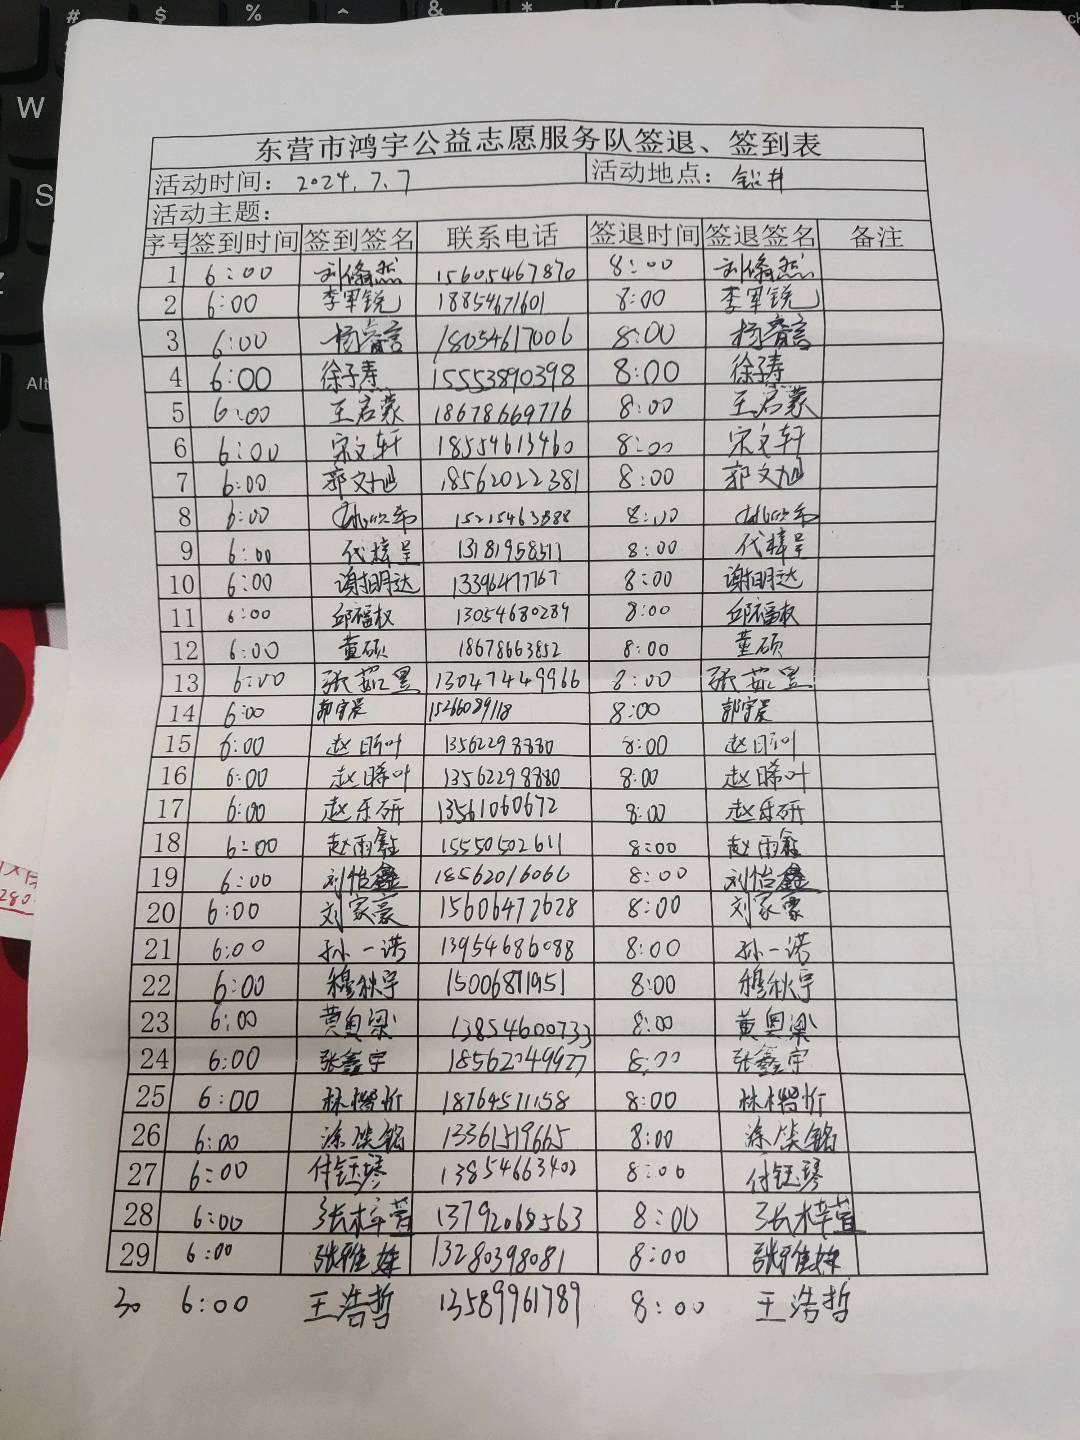 东营市鸿宇公益志愿服务队签退、签到表
活动时间：2024.7.7 活动地点：钻井
活动主题：
序号 签到时间 签到签名 联系电话 签退时间 签退签名 备注
1 6:00 刘倏然 15605467870 8:00 刘倏然
2 6:00 李军锐 18854671601 8:00 李军锐
3 6:00 杨睿言 18054617006 8:00 杨睿言
4 6:00 徐子寿 15553890398 8:00 徐子寿
5 6:00 王启蒙 18678669776 8:00 王启蒙
6 6:00 宋文轩 18554613460 8:00 宋文轩
7 6:00 郭文旭 18562022381 8:00 郭文旭
8 6:00 15215463888 8:00
9 6:00 代梓呈 13181958511 8:00 代梓呈
10 6:00 谢明达 13396477767 8:00 谢明达
11 6:00 邱福权 13054680289 8:00 邱福权
12 6:00 董硕 18678663852 8:00 董硕
13 6:00 张茹昱 13047449966 8:00 张茹昱
14 6:00 郭宇晨 15266089118 8:00 郭宇晨
15 6:00 赵昕叶 13562298880 8:00 赵昕叶
16 6:00 赵晞叶 13562298880 8:00 赵晞叶
17 6:00 赵乐研 13561060672 8:00 赵乐研
18 6:00 赵雨鑫 15550502611 8:00 赵雨鑫
19 6:00 刘怡鑫 18562016066 8:00 刘怡鑫
20 6:00 刘家豪 15606472628 8:00 刘家豪
21 6:00 孙一诺 13954686088 8:00 孙一诺
22 6:00 穆秋宇 15006811951 8:00 穆秋宇
23 6:00 黄奥梁 13854600733 8:00 黄奥梁
24 6:00 张鑫宇 18562049927 8:00 张鑫宇
25 6:00 林楷忻 18764571158 8:00 林楷忻
26 6:00 涂 铭 13361519665 8:00 涂 铭
27 6:00 付钰琴 13854663402 8:00 付钰琴
28 6:00 张梓萱 13792068563 8:00 张梓萱
29 6:00 张雅姝 13280398081 8:00 张雅姝
30 6:00 王浩哲 13589961789 8:00 王浩哲